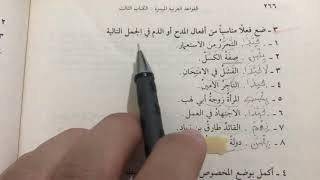 ٢٦٦
القواعد العربية الميسرة - الكتاب الثالث
٣ - ضع فعلاً مناسباً من أفعال المدح أو الذم في الجمل التالية
١ - حبذا التحرر من الاستعمار.
٢ - صفة الكسل.
٣ - الفشل في الامتحان.
٤ - التاجر الأمين.
٥ - المرأة زوجة أبي لهب.
٦ - الاجتهاد في العمل
٧ - القائد طارق بن زياد.
٨ - دولة
٤ - أكمل بوضع المخصوص